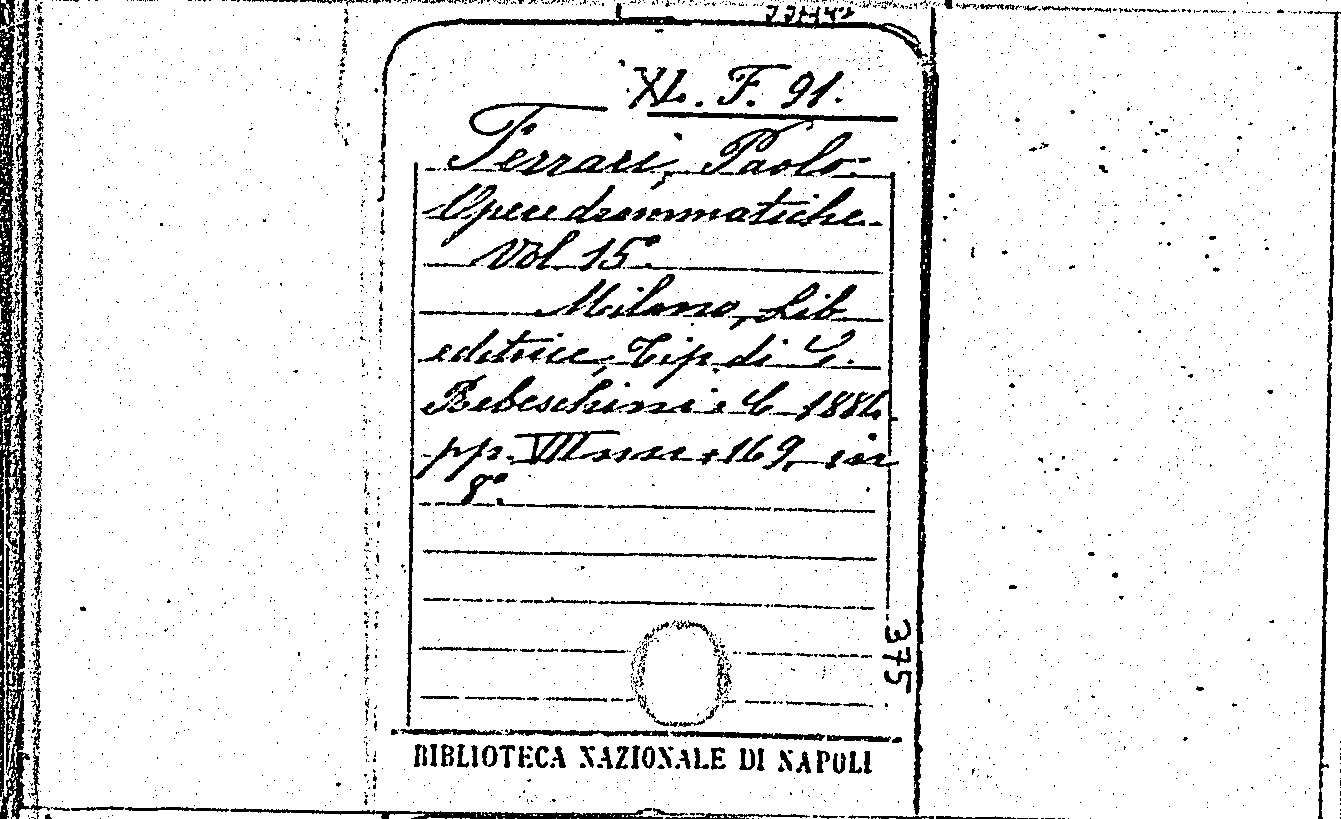 XL. F. 91.
Ferrari, Paolo.
Opere drammatiche.
Vol 15°.
Milano, Lib
editrice, Tip. di G.
Rebeschini e C 1884.
pp. VIII nn e 169, in
8°.
375
BIBLIOTECA NAZIONALE DI NAPOLI